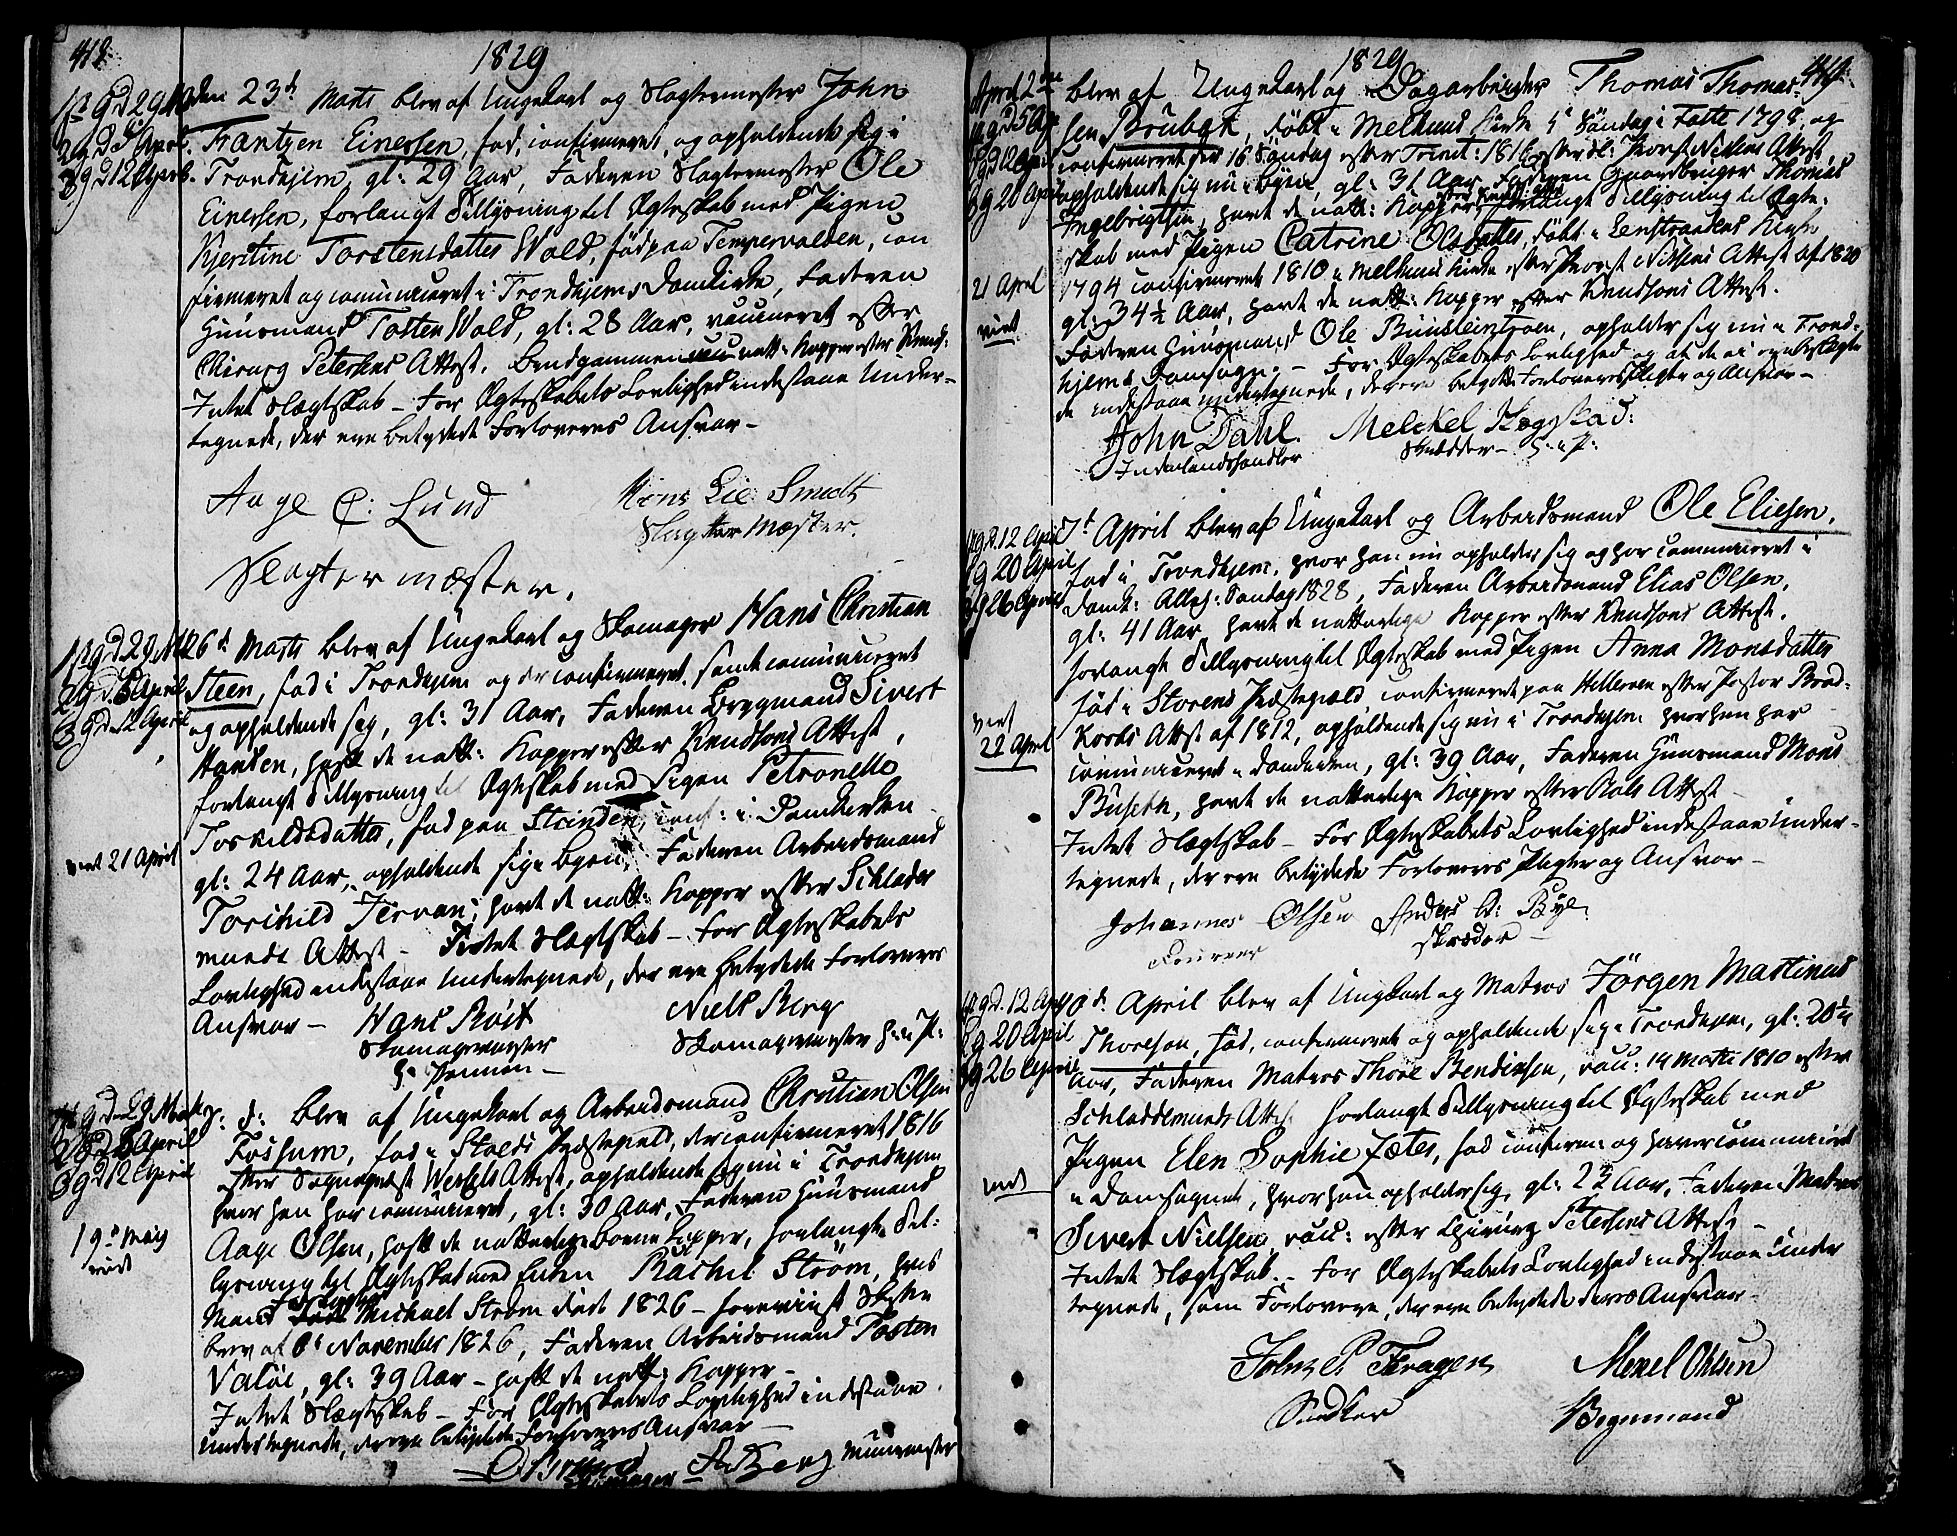 418.
1829
1ste g d 29 M
2 g d 5 April.
3 g d 12 April.
den 23de Marts blev af Ungekarl og Slagtermester John
Frantzen Einersen, fød, confirmeret, og opholdende sig i
Trondhjem, gl: 29 Aar, Faderen Slagtermester Ole
Einersen, forlangt Tillysning til Ægteskab med Pigen
Kjerstine Torstensdatter Wold, fød paa Tempervolden, con
firmeret og communiceret i Trondhjems Domkirke, Faderen
Huusmand Tosten Wold, gl: 28 Aar, vaccineret efter
Chirurg Petersens Attest. Brudgommen natt: Kopper efter Knud:
Intet Slægtskab – For Ægteskabets Lovlighed indestaae Under-
tegnede, der ere betydede Forloveres Ansvar –
Aage C: Lund
Slagtermæster.
Hans Lie Smedt
Slagtter Mæster.
1ste g d 29 M
2 g d. 5 April
3 g d 12 April
viet 21 April
26de Marts blev af Ungekarl og Skomager Hans Christian
Steen, fød i Trondhjem og er confirmeret, samt communiceret
og opholdende sig, gl: 31 Aar, Faderen Brygmand Sivert
Hansen, havt de natt: Kopper efter Knudsons Attest,
forlangt Tillysning til Ægteskab med Pigen Petronelle
Toskildsdatter, fød paa Strinden, conf: i Domkirken
gl: 24 Aar, opholdende sig i Byen, Faderen Arbeidsmand
Torchild Jervan, havt de natt: Kopper efter Schlader
munds Attest – Intet Slægtskab – For Ægteskabets
Lovlighed indestaae Undertegnede, der ere betydede Forloveres
Ansvar –
Hans Röst
Skomagermester
Niels Berg
Skomagermester
1ste g d 29 Marts
2 g d 5 April
3 g d 12 April
19de Maij
viet
d: blev af Ungekarl og Arbeidsmand Christian Olsen
Fossum, fød i Støeds Præstegield, der confirmeret 1816
efter Sognepræst Wessels Attest, opholdende sig nu i Trondhjem
hvor han har communiceret, gl: 30 Aar, Faderen Huusmand
Aage Olsen, havt de naturlige Børne Kopper, forlangte Til:
lysning til Ægteskab med Enken Rachel Strøm, hvis
Mand Michael Strøm døde 1826 – foreviist Skifte
brev af 6de November 1826, Faderen Arbeidsmand Tosten
Valöe, gl: 39 Aar – havt de natt: Kopper –
Intet Slægtskab – For Ægteskabets Lovlighed indestaae
Undertegnede, der ere betydede Forloveres Ansvar –
Berg Muurmester
1829
419.
April 2den
1 g d 5 Ap
2 g d 12 April
3 g 20 April
21 April
viet
blev af Ungekarl og Dagarbeider Thomas Thomas-
sen Brubak, født i Melhuus Kirke 5te Søndag i Faste 1798, og
confirmeret der 16 Søndag efter Trinit: 1816 efter Provst Nilsens Attest,
opholdende sig nu i Byen, gl: 31 Aar, Faderen Gaardbruger Thomas
Ingebrigtsen, havt de natt: Kopper, forlangt Tillysning til Ægte-
skab med Pigen Catrine Olsdatter, født i Leenstrandens Kirke
1794 confirmeret 1810 i Melhuus Kirke efter Provst Nilsens Attest af 1820
gl: 34½ Aar, havt de natt: Kopper efter Knudsons Attest.
Faderen Huusmand Ole opholder sig nu i Trond-
hjems Domsogn. – For Ægteskabets Lovlighed og at de ei ere beslægte
de indestaae undertegnede, der ere betydede Forloveres Pligter og Ansvar –
John Dahl.
Inderlandshandler
Melckel Hegstad:
Skrædder
1 g d. 12 April
2 g 20 April
3 g 26 April
viet
22 April
7de April blev af Ungekarl og Arbeidsmand Ole Eliesen,
fød i Trondhjem, hvor han nu opholder sig og har communiceret i
Domk: Allh: Søndag 1828, Faderen Arbeidsmand Elias Olsen,
gl: 41 Aar, havt de naturlige Kopper efter Knudsons Attest.
forlangte Tillysning til Ægteskab med Pigen Anna Monsdatter
fød i Størens Præstegield confirmeret paa Hitteren efter Pastor Brod-
korbs Attest af 1812, opholdende sig nu i Trondhjem hvor hun har
communiceret i Domkirken, gl: 39 Aar, Faderen Huusmand Mons
Buseth, havt de naturlige Kopper efter Attest –
Intet Slægtskab – For Ægteskabets Lovlighed indestaae Under-
tegnede, der ere betydede Forloveres Pligter og Ansvar –
Johannes Olsen
Anders A: Bye.
skræder –
1 g d. 12 Ap
2 g 20 April
3 g 26 April
viet
April blev af Ungekarl og Matros Jörgen Martinus
Thoresen, fød, confirmeret og opholdende sig i Trondhjem, gl: 20½
Aar, Faderen Matros Thore Bendixsen, vacc: 14 Marts 1810 efter
Schladdermunds Attest forlangt Tillysning til Ægteskab med
Pigen Elen Sophie Zetes, fød confirm: og haver communiceret
i Domsognet, hvor hun opholder sig, gl: 22 Aar, Faderen Matros
Sivert Nielsen, vacc: efter Chirurg Petersens Attest –
Intet Slægtskab. – For Ægteskabets Lovlighed indestaae Under
tegnede, som Forlovere, der ere betydede deres Ansvar –
John P Fragen
Snedker
Mekel Ohlsen
Bogmand